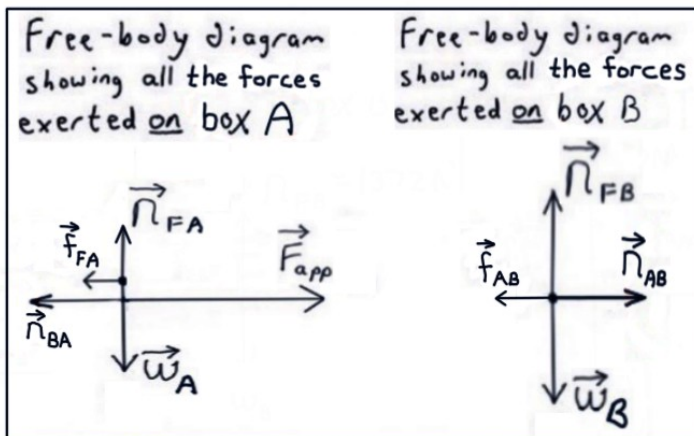 Free-body diagram
showing all the forces
exerted on box A
n⃗FA
f⃗FA
F⃗app
n⃗BA
w⃗A
Free-body diagram
showing all the forces
exerted on box B
n⃗FB
f⃗AB
n⃗AB
w⃗B